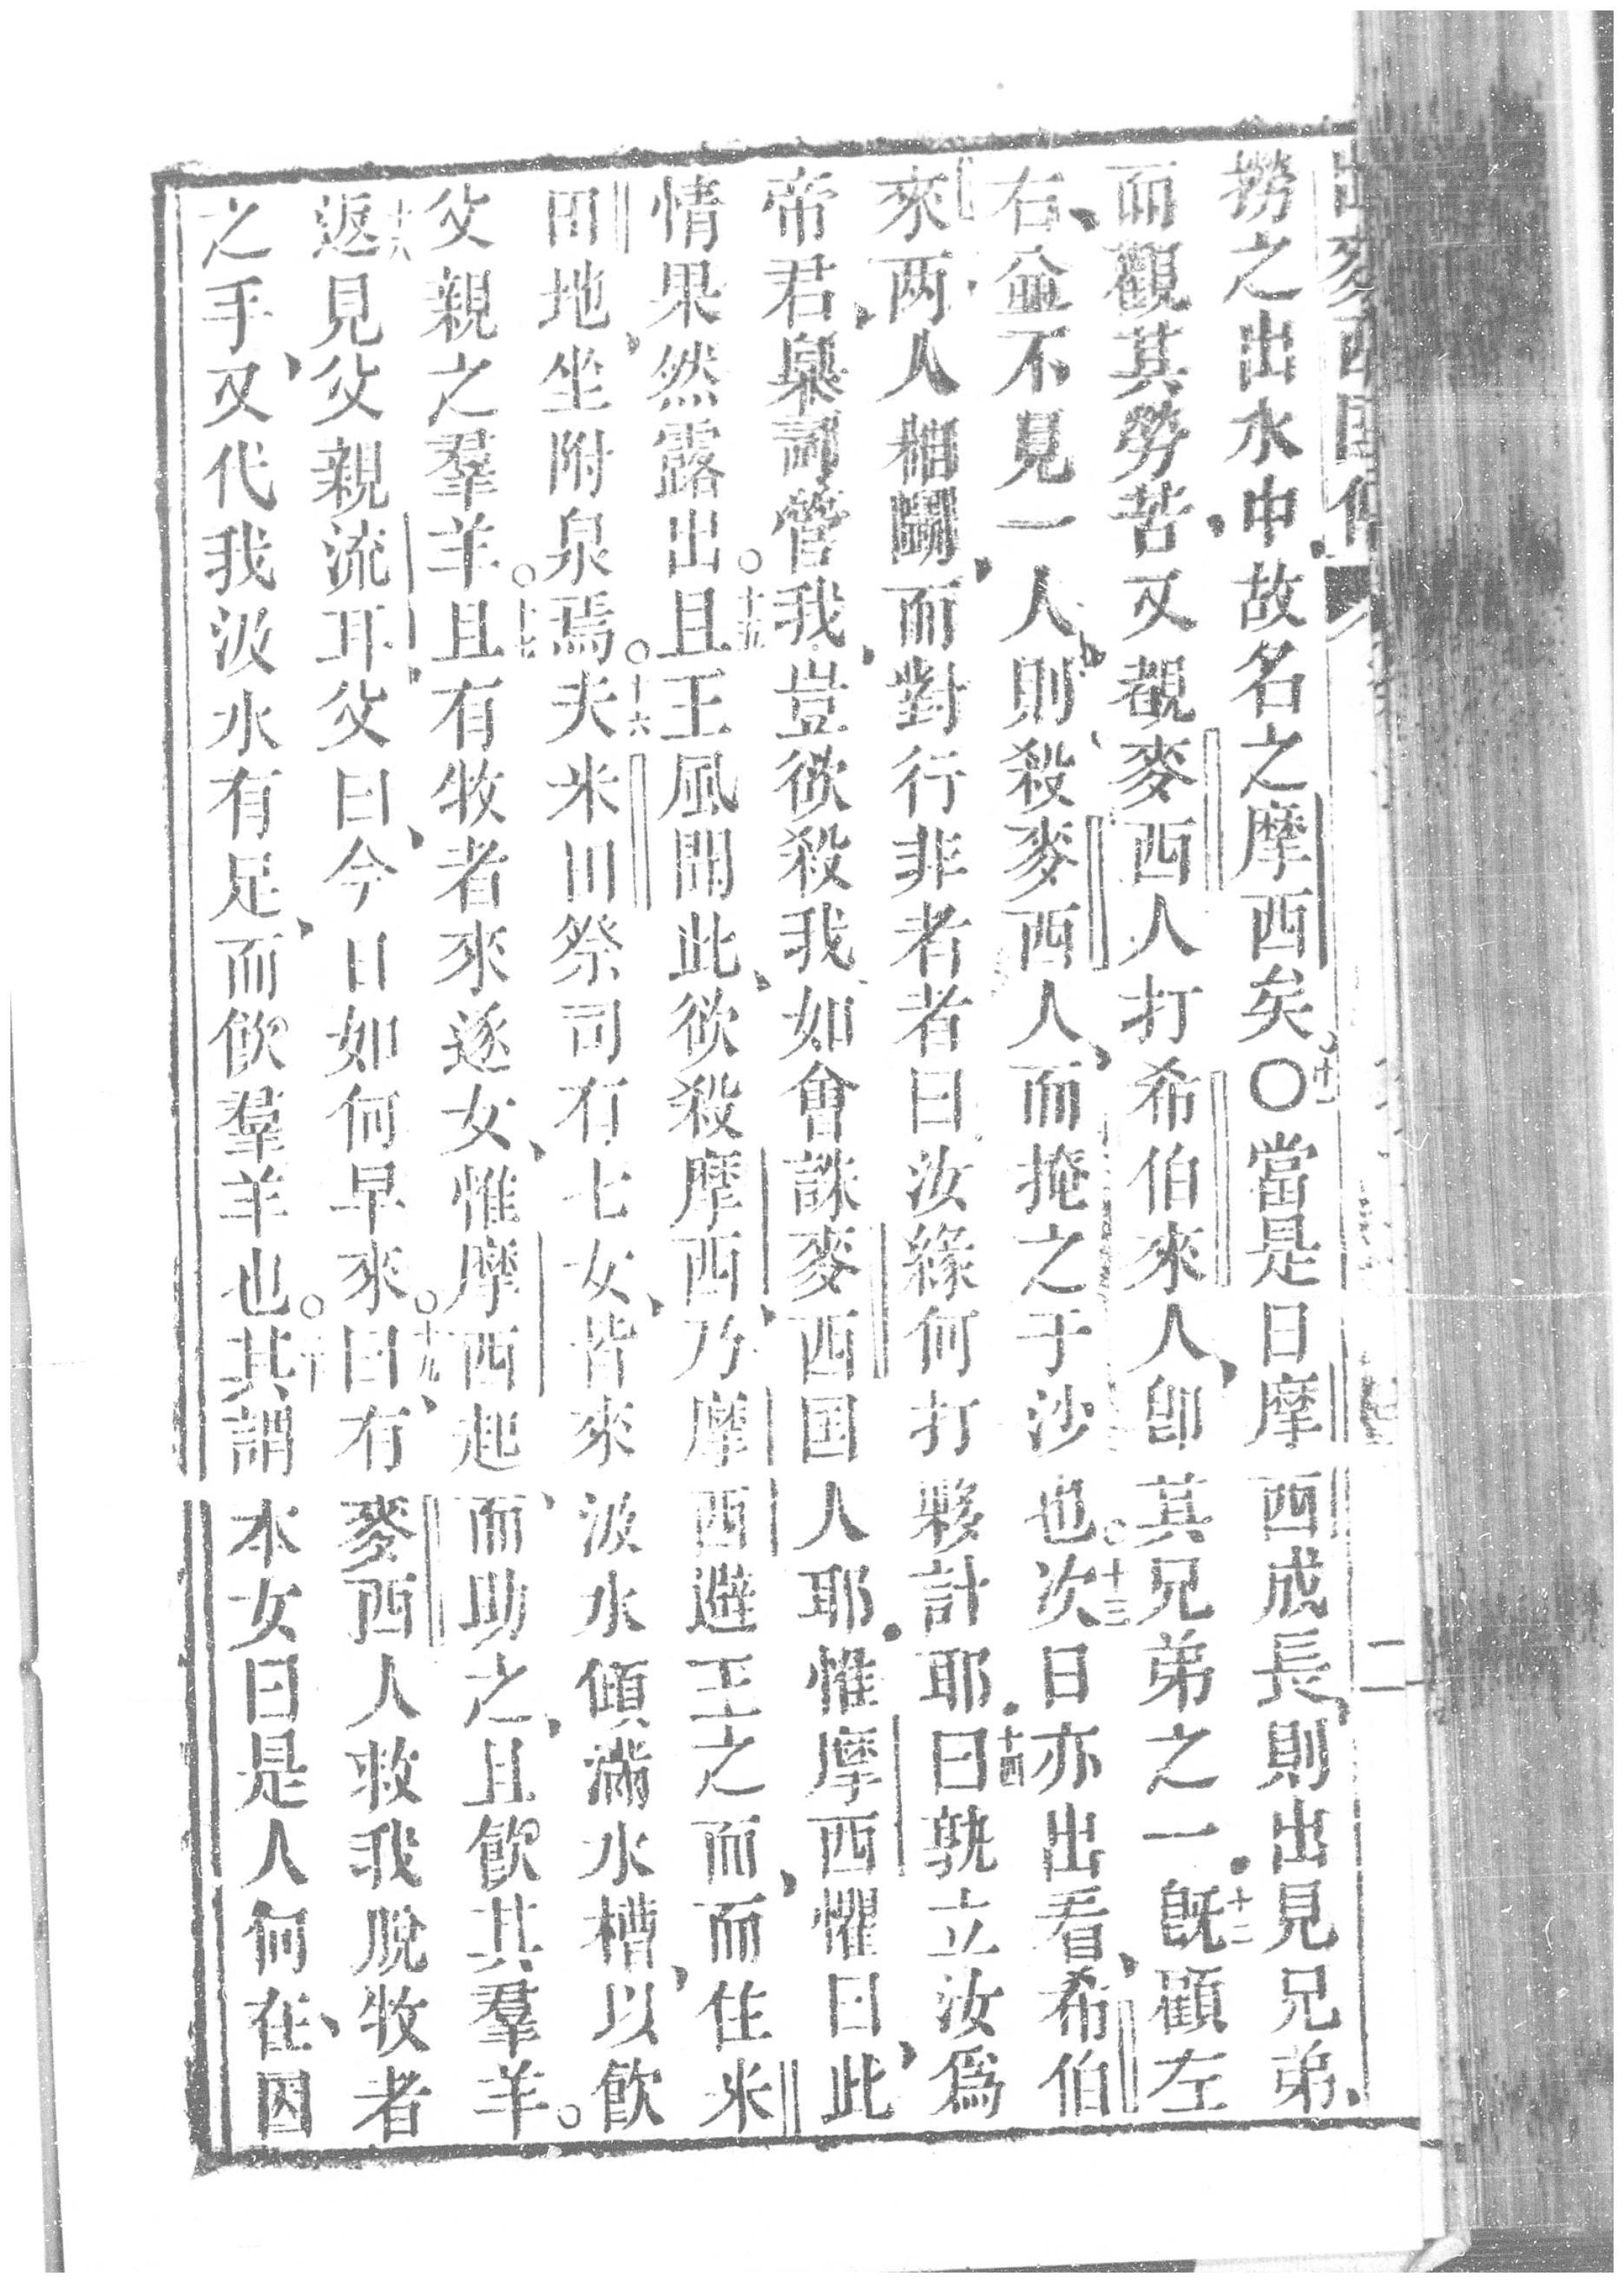 出麥西国傳
撈之出水中故名之摩西矣。十一〇當是日摩西成長、則出見兄弟、
而觀其勞苦、又覩麥西人打希伯來人、卽其兄弟之一。十二既顧左
右、並不見一人、則殺麥西人、而掩之于沙也。十三次日亦出看、希伯
來两人相鬬、而對行非者者曰汝緣何打夥計耶。十四曰孰立汝爲
帝君、梟司管我、豈欲殺我、如會誅麥西国人耶。惟摩西懼曰、此
情果然露出。十五且王風聞此、欲殺摩西、乃摩西避王之面、而住米
田地、坐附泉焉。十六夫米田祭司有七女、皆來汲水傾滿水槽、以飲
父親之羣羊。十七且有牧者來逐女、惟摩西起、而助之、且飲其羣羊。
十八返見父親流耳、父曰、今日如何早來。十九曰、有麥西人救我脫牧者
之手、又代我汲水有足、而飲羣羊也。二十其謂本女曰是人何在、因
二